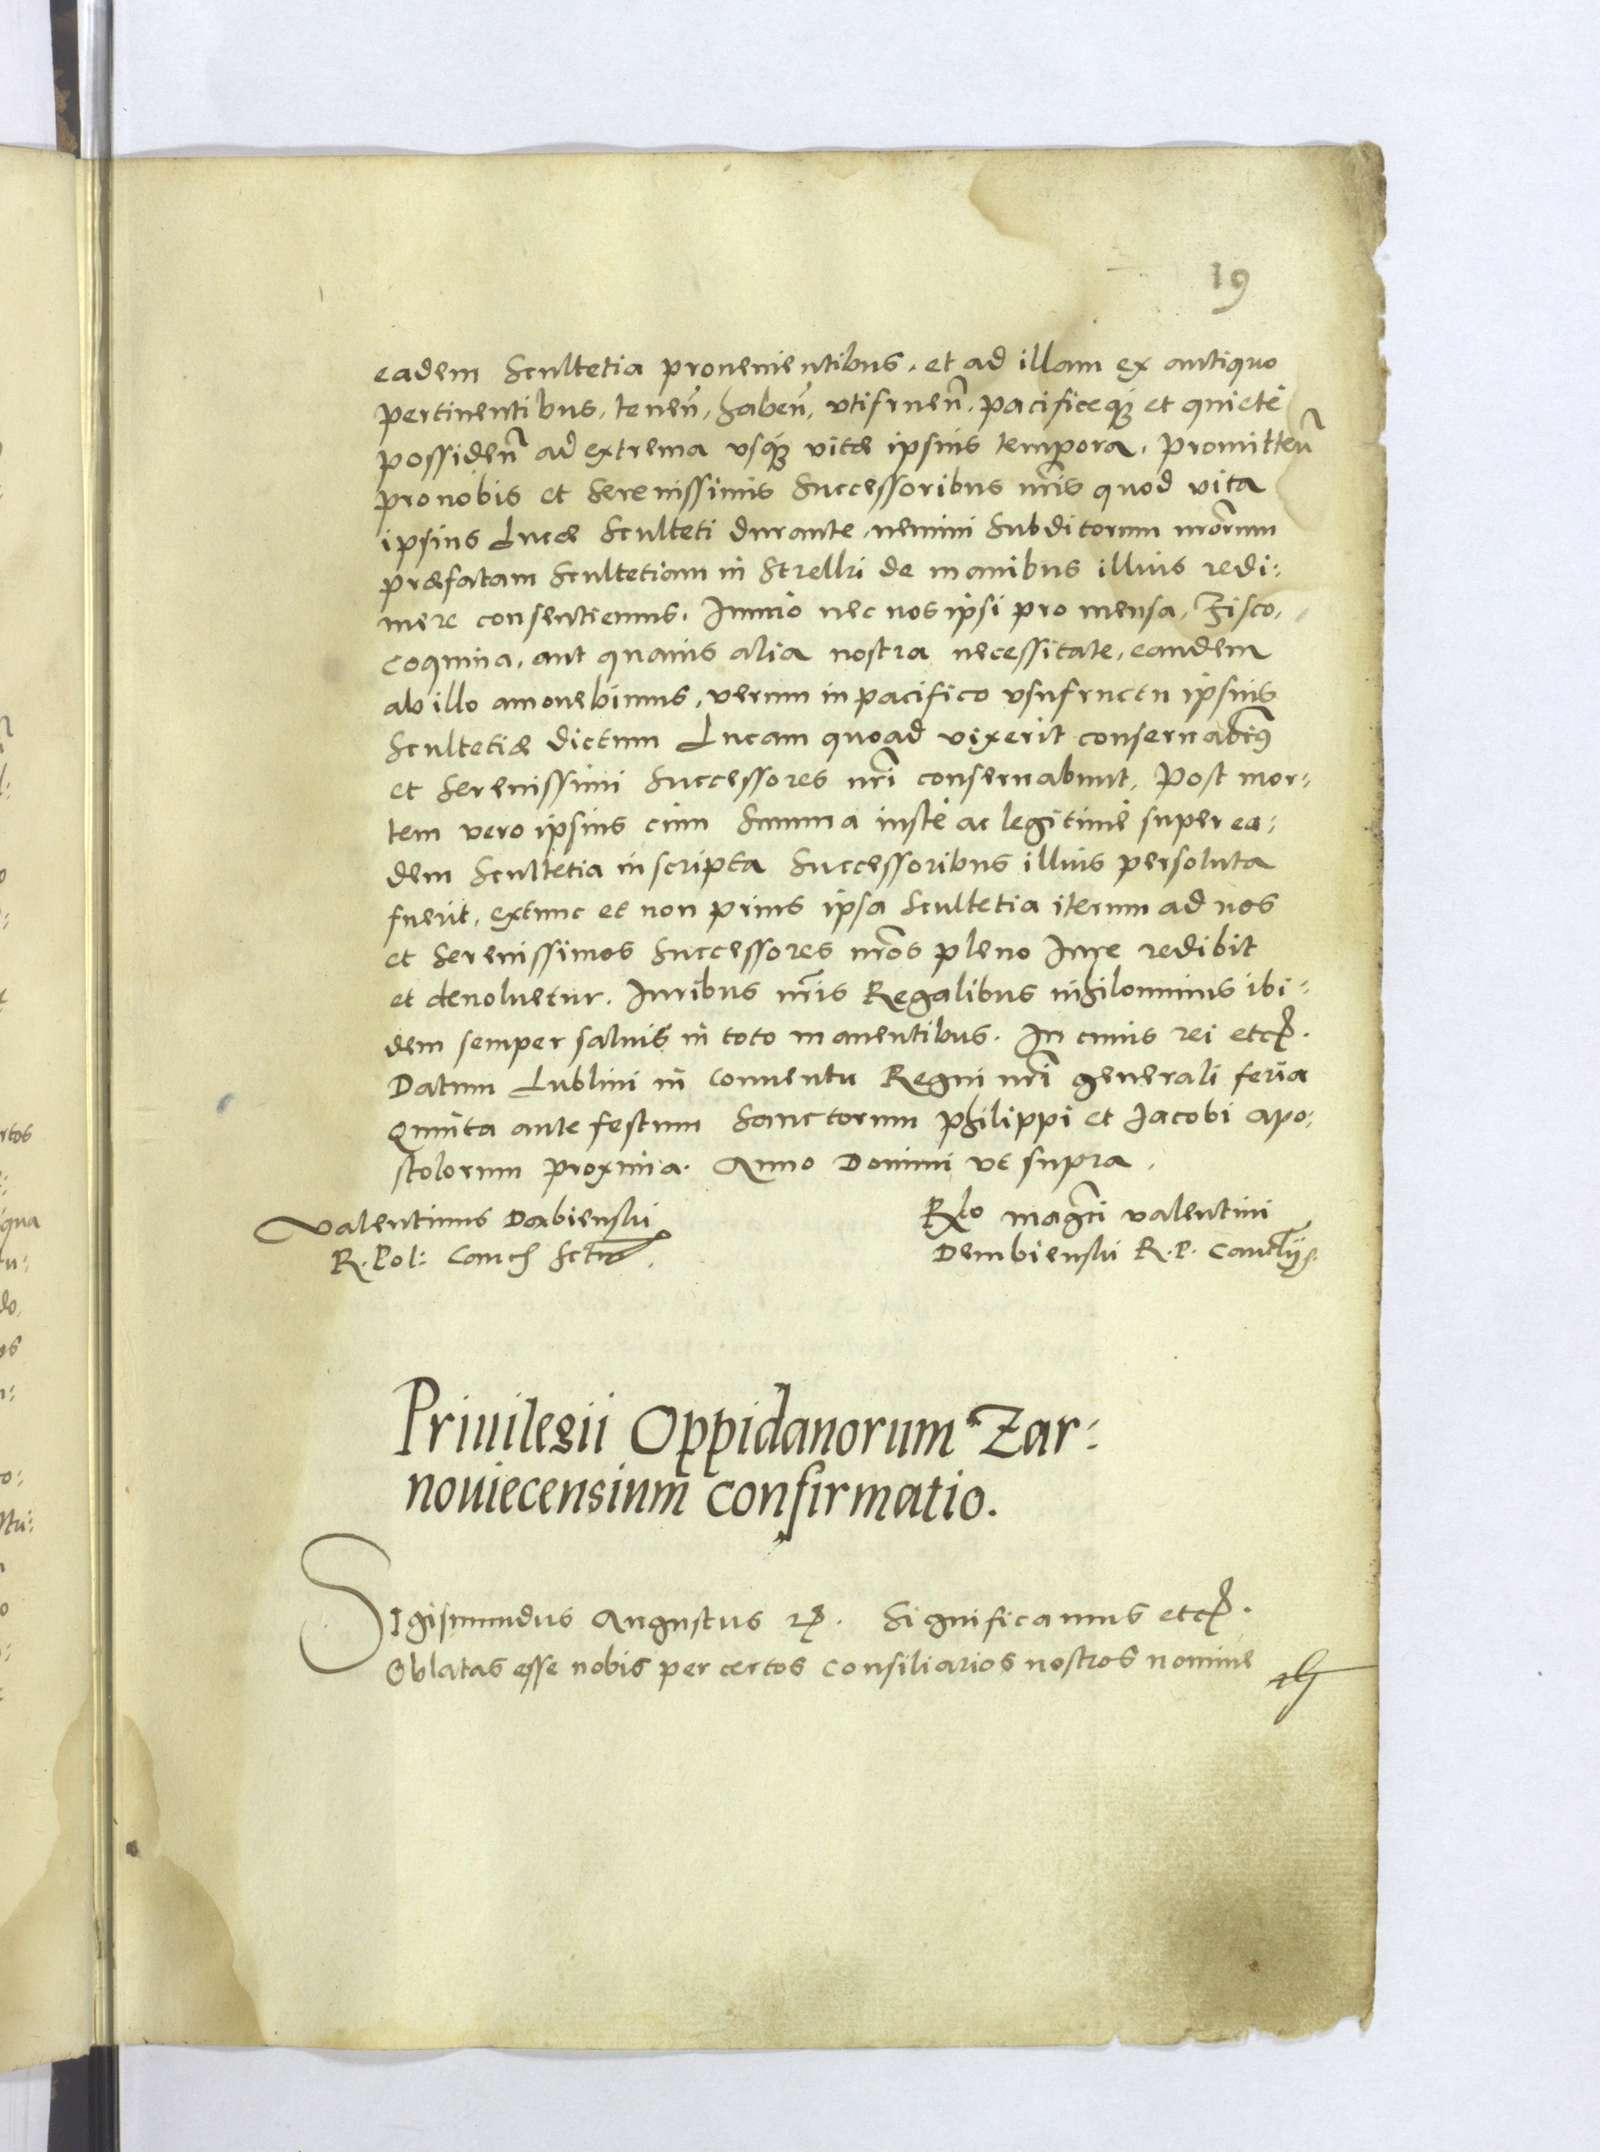 19
eadem scultetia prouenientibus, et ad illam ex antiquo
pertinentibus, teneñ, habeñ, vtifrueñ, pacificeq₃ et quietè
possideñ ad extrema vsq₃ vitæ ipsius tempora. Promitteñ
pro nobis et serenissimis successoribus nr̃is quod vita
ipsius Lucæ Sculteti durante, nemini subditorum nr̃orum
præfatam scultetiam in Strelki de manibus illius redi:
mere consentiemus. Immo nec nos ipsi pro mensa, Fisco,
coquina, aut quauis alia nostra necessitate, eandem
ab illo amouebimus, verum in pacifico vsufructu ipsius
scultetiæ dictum Lucam quoad vixerit conseruabim⁹
et serenissimi successores nr̃i conseruabunt. Post mor:
tem vero ipsius cum summa iuste ac legitime super ea:
dem scultetia inscripta successoribus illius persoluta
fuerit, extunc et non prius ipsa scultetia iterum ad nos
et serenissimos successores nr̃os pleno Iure redibit
et deuoluetur. Iuribus nr̃is Regalibus nihilominus ibi:
dem semper saluis in toto manentibus. In cuius rei etc.
Datum Lublini in conuentu Regni nr̃i generali feria
Quinta ante festum Sanctorum Philippi et Jacobi apo:
stolorum proxima. Anno Domini vt supra.
Valentinus Dąbienski
R. Pol: Canc
Rlo magci valentini
Dembienski R. P.
Priuilegii Oppidanorum Zar:
nouiecensium confirmatio.
Sigismundus Augustus etc. Significamus etc.
Oblatas esse nobis per certos consiliarios nostros nomine